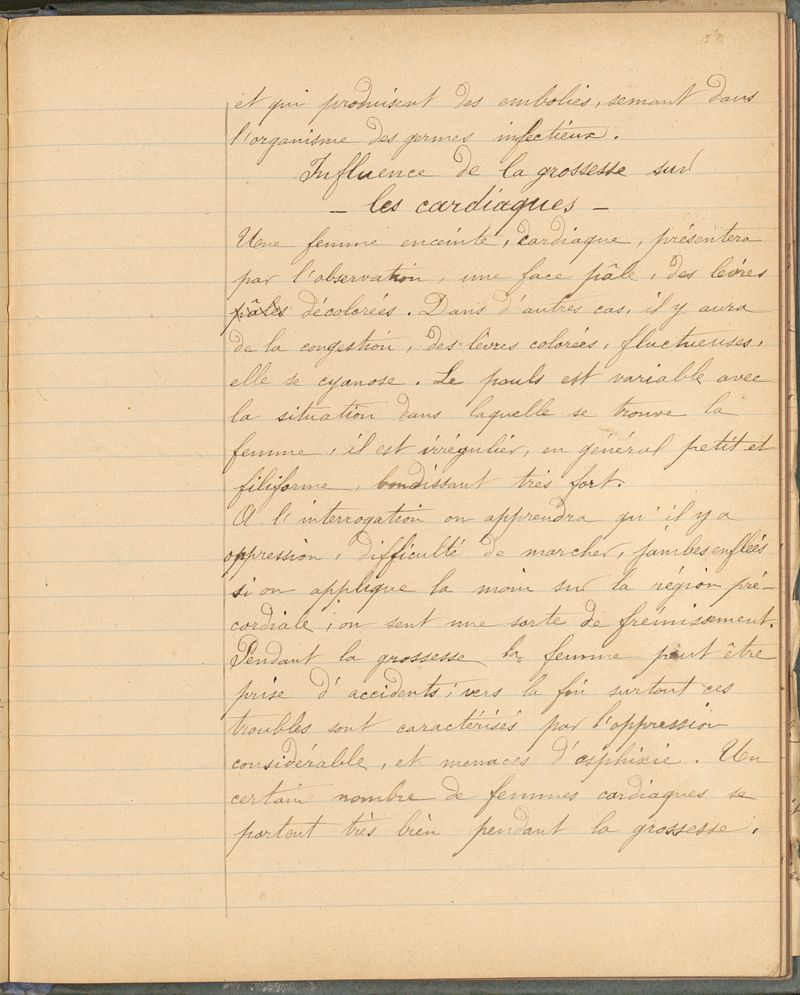 et qui produisent des embolies, semant dans
l'organisme des germes infectieux.
Influence de la grossesse sur
- les cardiaques -
Une femme enceinte, cardiaque, présentera
par l'observation, une face pâle, des lèvres
pâles décolorées. Dans d'autres cas, il y aura
de la congestion, des lèvres colorées, fluctueuses,
elle se cyanose. Le pouls est variable avec
la situation dans laquelle se trouve la
femme, il est irrégulier, en général petit et
filiforme, bondissant très fort.
A l'interrogation on apprendra qu'il y a
oppression, difficulté de marcher, jambes enflées
si on applique la main sur la région pré-
cordiale, on sent une sorte de frémissement.
Pendant la grossesse la femme peut être
prise d'accidents; vers la fin surtout ces
troubles sont caractérisés par l'oppression
considérable, et menaces d'asphixie. Un
certain nombre de femmes cardiaques se
portent très bien pendant la grossesse,